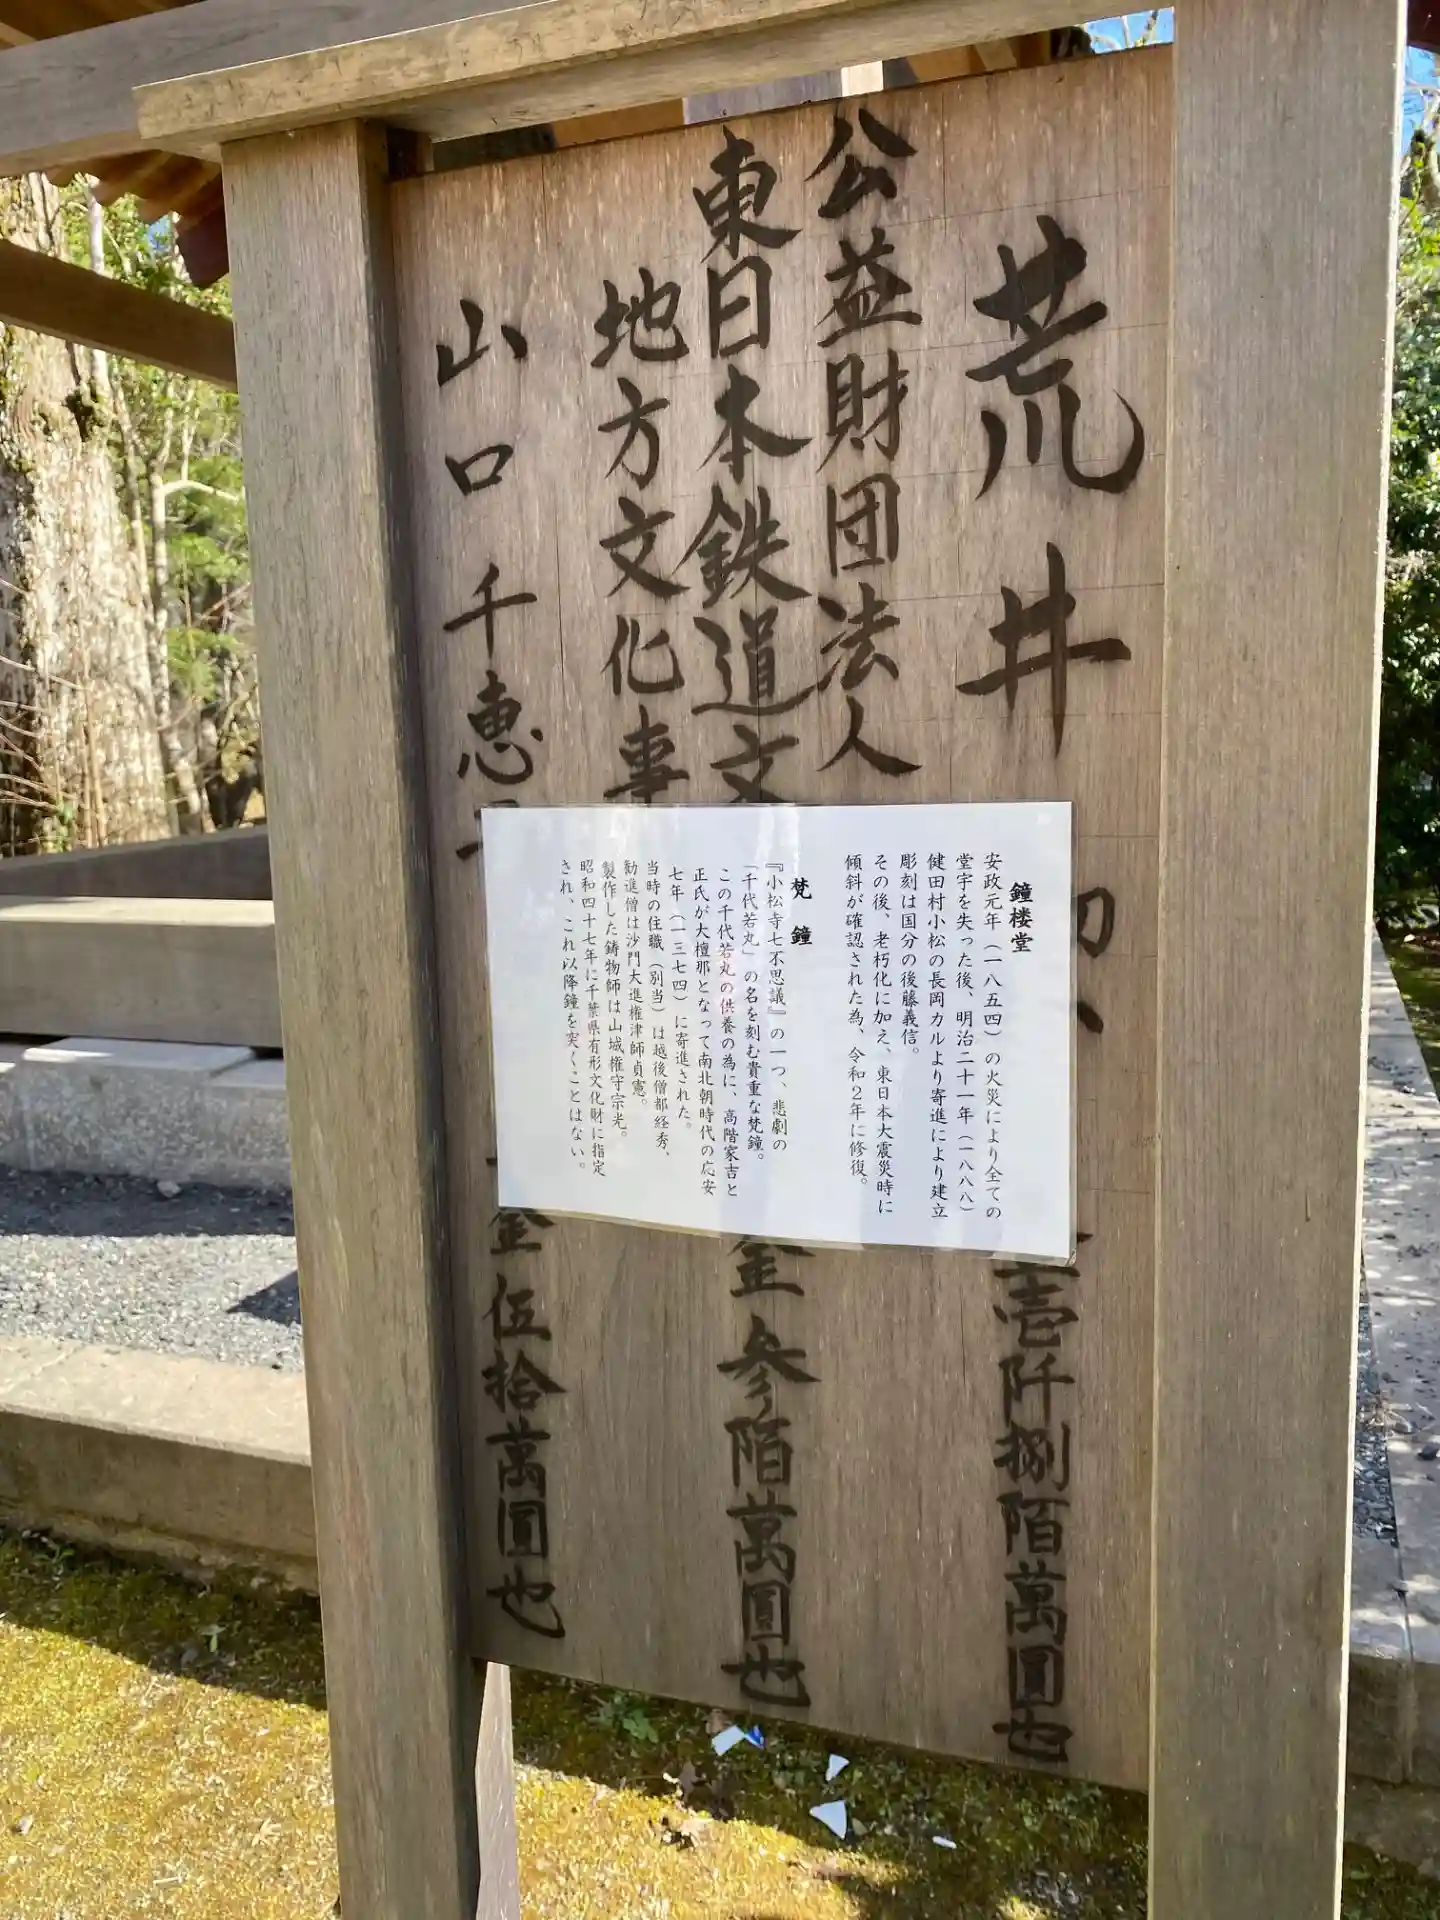 荒井
金壱阡捌陌萬圓也
公益財団法人
東日本鉄道文
地方文化事
金参陌萬圓也
山口千恵子
金伍拾萬圓也
鐘楼堂
安政元年（一八五四）の火災により全ての
堂宇を失った後、明治二十一年（一八八八）
健田村小松の長岡カルより寄進により建立
彫刻は国分の後藤義信。
その後、老朽化に加え、東日本大震災時に
傾斜が確認された為、令和２年に修復。
梵鐘
『小松寺七不思議』の一つ、悲劇の
「千代若丸」の名を刻む貴重な梵鐘。
この千代若丸の供養の為に、高階家吉と
正氏が大檀那となって南北朝時代の応安
七年（一三七四）に寄進された。
当時の住職（別当）は越後僧都経秀、
勧進僧は沙門大進権津師貞憲。
製作した鋳物師は山城権守宗光。
昭和四十七年に千葉県有形文化財に指定
され、これ以降鐘を突くことはない。